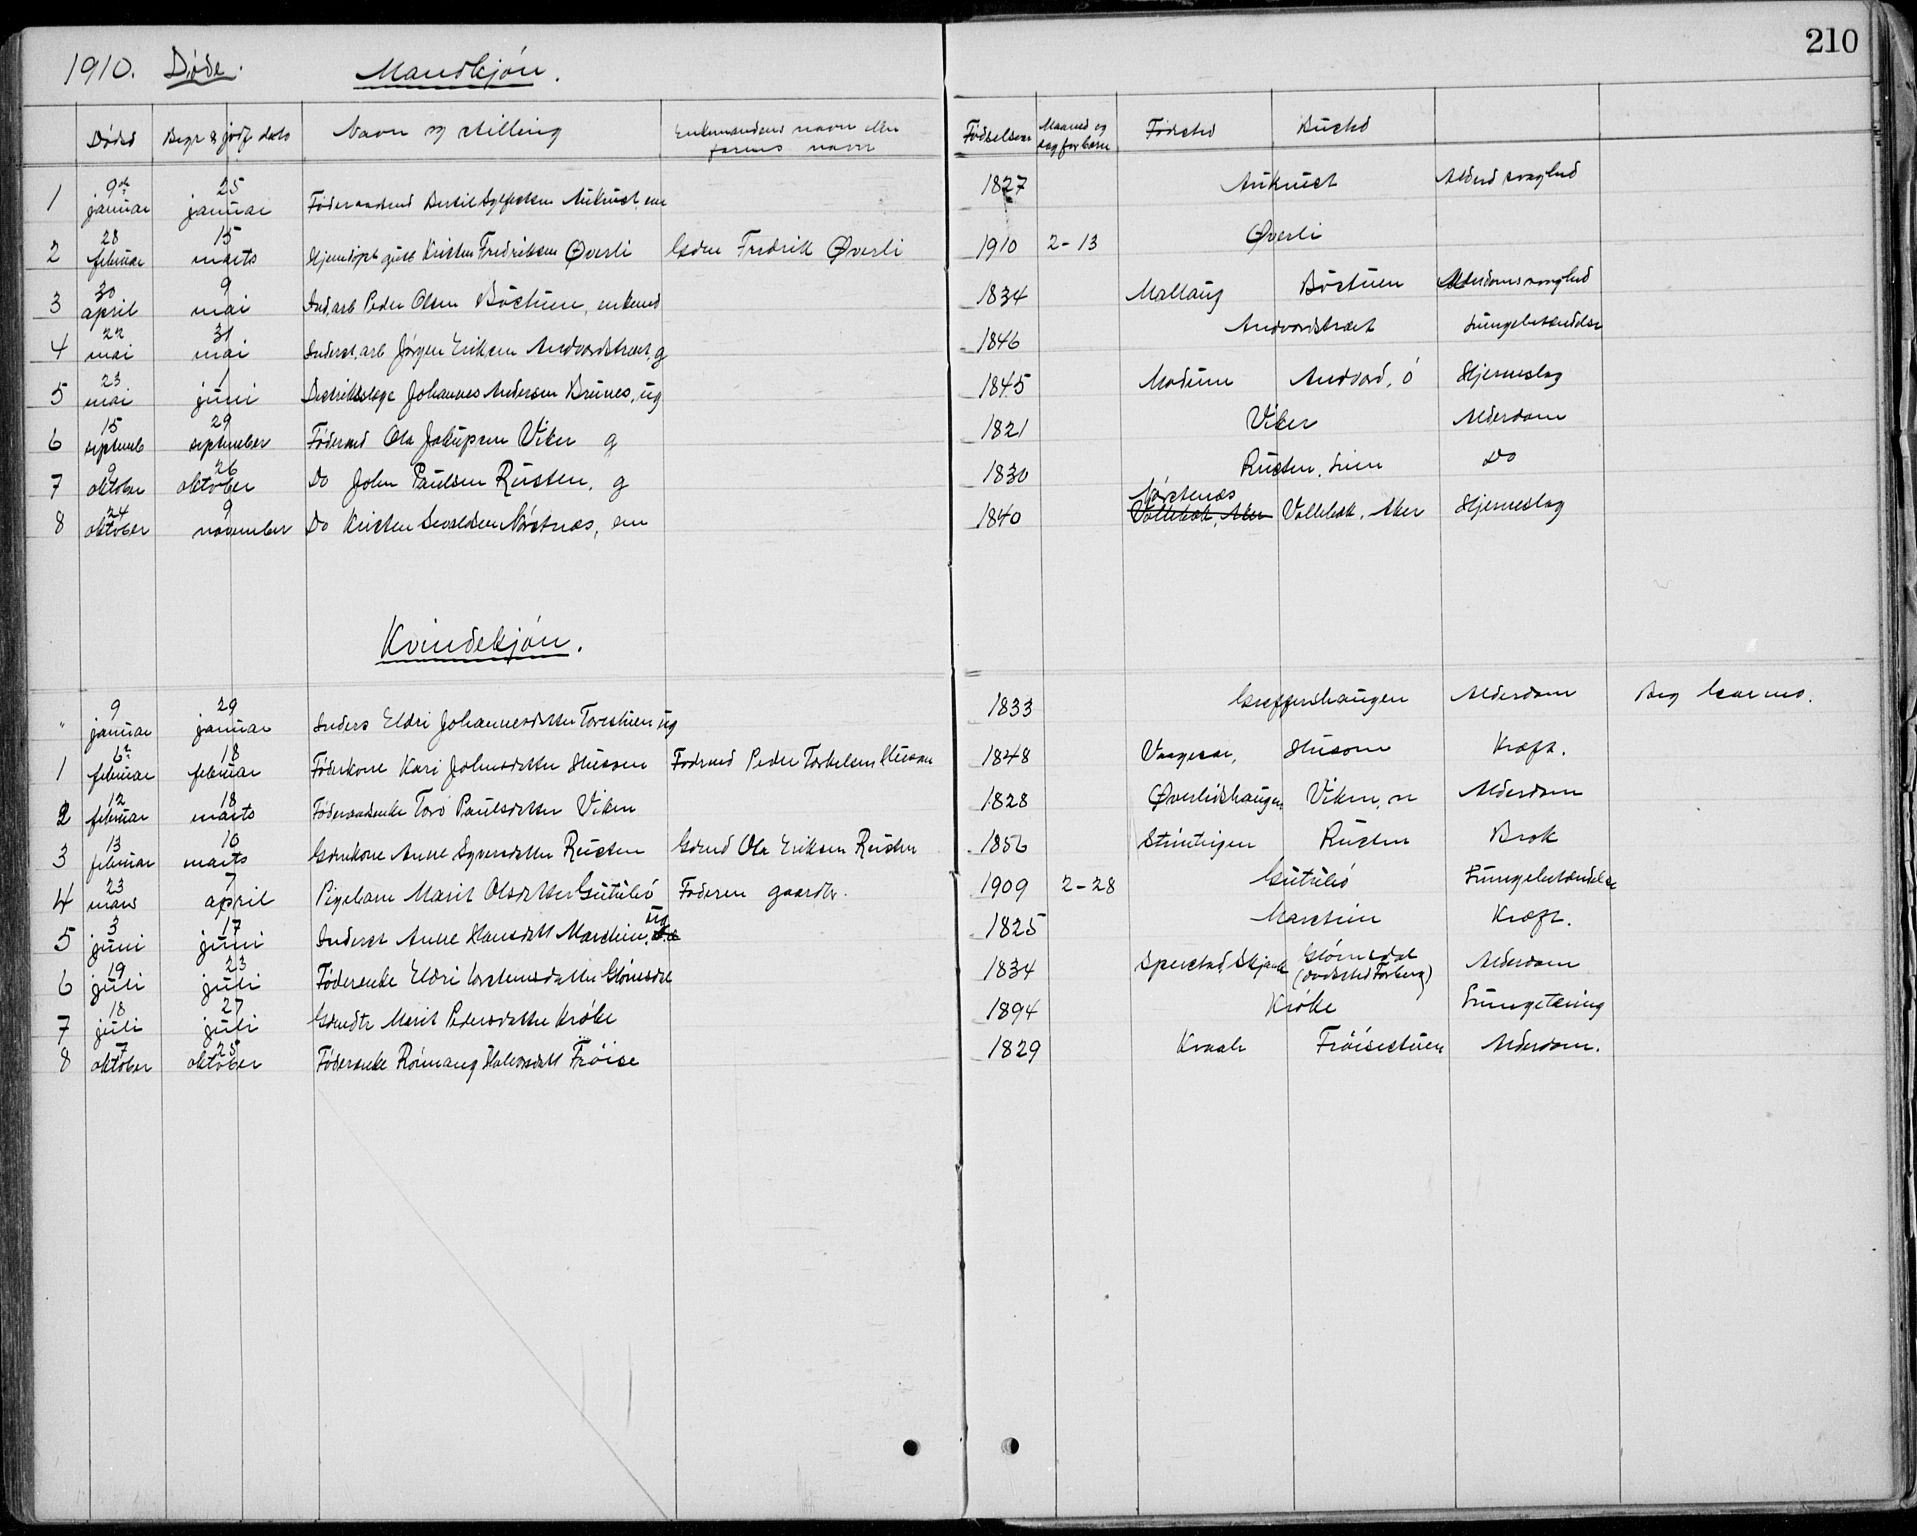 210
1910. Døde. Mandkjön.
Dødsd Begr & jordf dato Navn og stilling Enkemandens navn eller Fødselsaar Maaned og Fødested Bosted
farens navn dag for børn
1 9de januar 25 januar Föderaadsmd Bersvein Sylfestsen Aukrust, em 1827 Aukrust Alderd svaghed
2 28 februar 15 marts Hjemdøpt gutt Kristen Fredriksen Øverli Gdm Fredrik Øverli 1910 2-13 Øverli
3 30 april 9 mai Ind.arb Peder Olsen Böstuen, enkemd 1834 Mallaug Böstuen Alderdomssvaghed
4 22 mai 31 mai Inderst.arb Jörgen Eriksen Andvordstræet, g 1846 Andvordstræet Lungebetændelse
5 23 mai 1 juni Distriktslæge Johannes Andersen Brunes, ug 1845 Modum Andvord, ö Hjerneslag
6 15 septemb 29 september Födermd Ola Jakupsen Viker g 1821 Viker Alderdom
7 9 oktober 26 oktober Do John Paulsen Rusten, g 1830 Rusten, Lien Do
8 24 oktober 9 november Do Kristen Sevaldsen Nörstnæs, em 1840 Nörstnæs Vollebæk, Aker Vollebæk, Aker Hjerneslag
Kvindekjön.
" 9 januar 29 januar Inders Eldri Johannesdatter Torestuen ug 1833 Greffershaugen Alderdom Beg Garmo.
1 6te februar 18 februar Föderkone Kari Johnsdatter Husom Fodrmd Peder Torkelsen Husom 1848 Vaagear, Husom Kræft.
2 12 februar 18 marts Föderaadsenke Toro Paulsdatter Viken 1828 Øverlidshaugen Viken, n Alderdom
3 13 februar 10 marts Gdmkone Anne Syversdatter Rusten Gdmd Ola Eriksen Rusten 1856 Rusten Brok
4 23 mars 7 april Pigebarn Marit Olsdatter Gutulió Faderen gaardbr. 1909 2-28 Gutulió Lungebetændelse
5 3 juni 17 juni Inderst Anne Hansdatt Marstein, ug 1825 Marstein Kræft.
6 19 juli 23 juli Föderenke Eldri Torsteinsdatter Glömsdal 1834 Sperstad, Skjaak Glömsdal
(dødssted Forberg) Alderdom
7 18 juli 27 juli Gdmdtr Marit Pedersdatter Kröke 1894 Kröke Lungetæring
8 7 oktober 25 oktober Föderenke Rönnaug Halvorsdatt Fröise 1829 Kvaale Fröisestuen Alderdom.